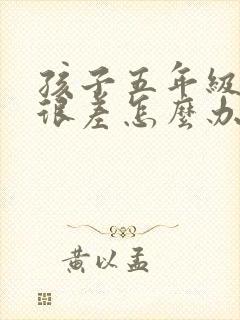 孩子五年級
很差怎麼办
黄以孟